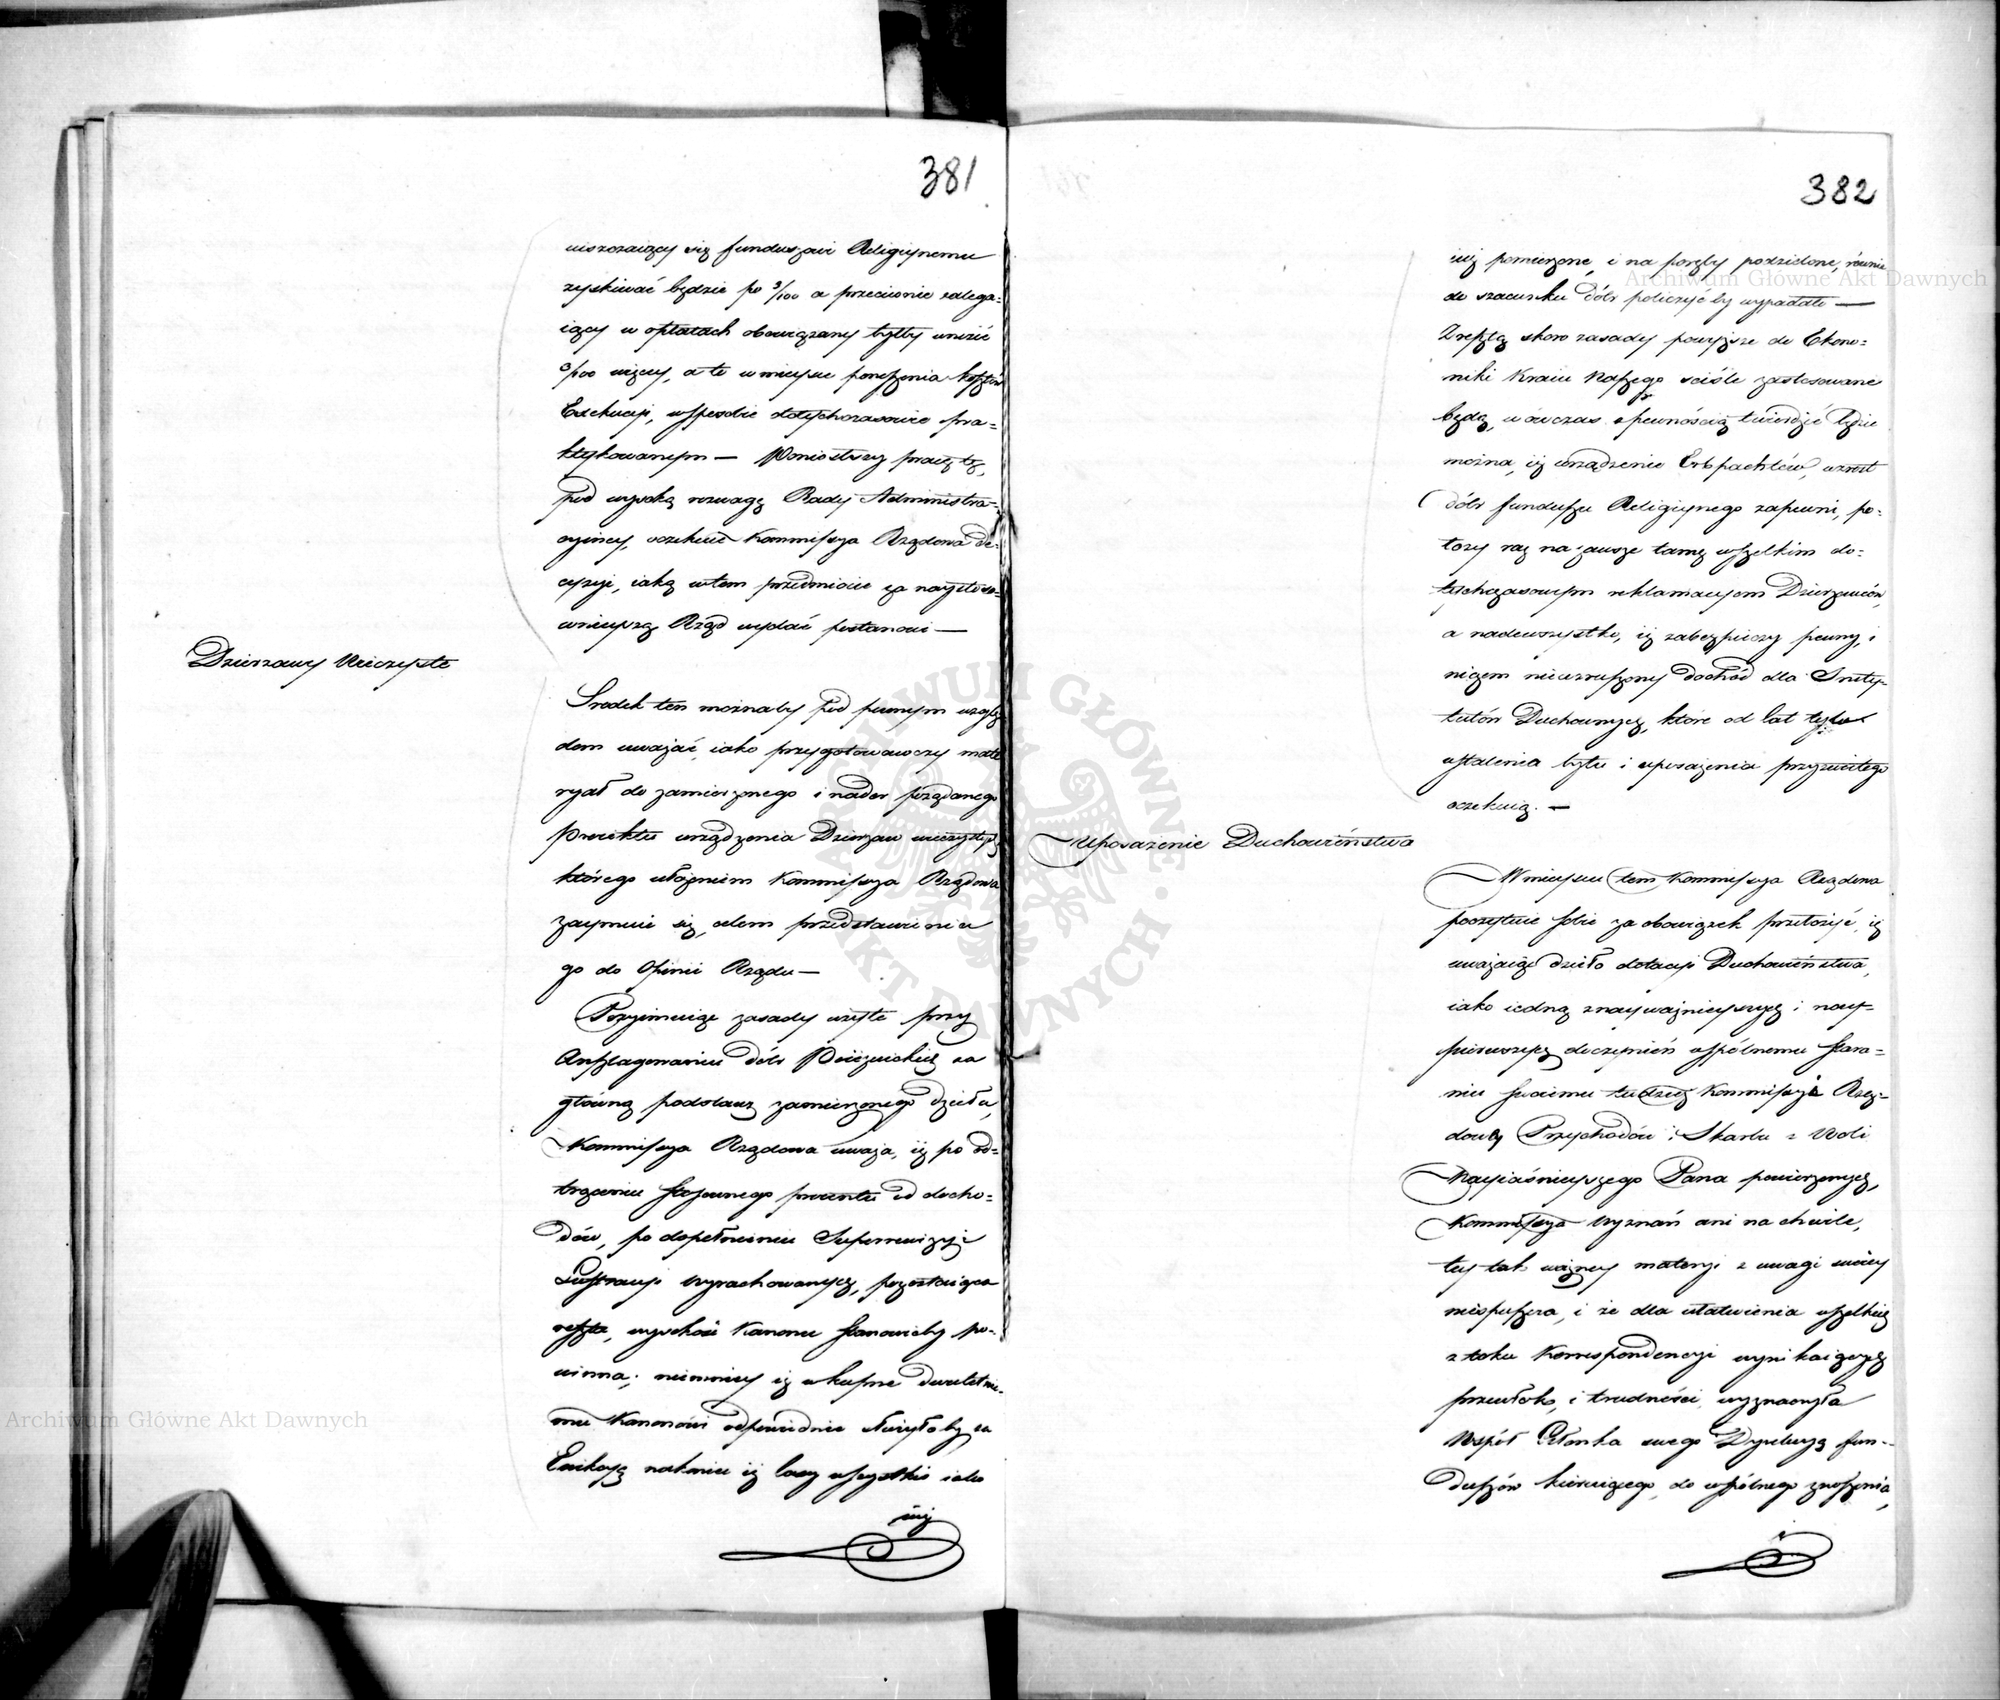 381
uiszczaiący się funduszowi Religiynemu
zyskiwać będzie po 3/100 a przeciwnie zalega=
iący w opłatach obowiązany byłby wnieść
3/100 więcey, a to w mieysce ponoszenia kosztów
Exekucyi, w sposobie dotychczasowie pra=
ktykowanym —
pod wysoką rozwagę Rady Administra=
cyiney, oczekuie Kommissya Rządowa de=
cyzyi, iaką w tem przedmiocie za naystoso=
wnieyszą Rząd wydać postanowi —
Dzierzawy Wieczyste
Srodek ten możnaby pod pewnym wzglę
dem uważać, iako przygotowawczy mate
ryał do zamierzonego i nader pożądanego
Proiektu urządzenia Dzierzaw wieczystych
którego ułożeniem Kommissya Rządowa
zaymuie się, celem przedstawienia
go do Opinii Rządu —
Przyimuiąc zasady użyte przy
Anszlagowaniu dóbr za
główną podstawę zamierzonego dzieła,
Kommissya Rządowa uważa, iż po od=
trąceniu stosownego procentu od docho=
dów, po dopełnieniu Superrewizyi i
Lustracyi wyrachowanych, pozostaiąca
reszta, wysokość Kanonu stanowićby po=
winna; niemniey iż wkupne dwuletnie=
mu Kanonowi odpowiednie służyłoby za
nakoniec iż lasy wszystkie iako
iuż
382
iuż pomierzone, i na poręby podzielone, równie
do szacunku dóbr policzyć by wypadało —
Zresztą skoro zasady powyższe do Ekono=
miki Kraiu Naszego ściśle zastosowane
będą, w ówczas z pewnością twierdzić będzie
można, iż urządzenie Erbpachtów, wzrost
dóbr funduszu Religiynego zapewni, po=
łoży raz na zawsze tamę wszelkim do=
tychczasowym reklamacyom Dzierzawców,
a nadewszystko, iż zabezpieczy pewny, i
niczem niewzruszony dochód dla Insty=
tutów Duchownych, które od lat tylu
ustalenia bytu i uposażenia przyzwoitego
oczekuią. —
Uposażenie Duchowieństwa
W mieyscu tem Kommissya Rządowa
poczytuie sobie za obowiązek przełożyć, iż
uważaiąc dzieło dotacyi Duchowieństwa,
iako iedną z nayważnieyszych i nay=
pierwszych do czynień wspólnemu stara=
niu swoiemu tudzież Kommissyi Rzą=
dowey Przychodów i Skarbu z Woli
Nayiaśnieyszego Pana powierzonych,
Kommissya Wyznań ani na chwilę,
tey tak ważney materyi z uwagi swoiey
niespuszcza, i że dla ułatwienia wszelkich
z toku Korrespondencyi wynikaiących
przewłok, i trudności, wyznaczyła
Współ Członka swego Dyrekcyą fun=
duszów kieruiącego, do wspólnego znoszenia,